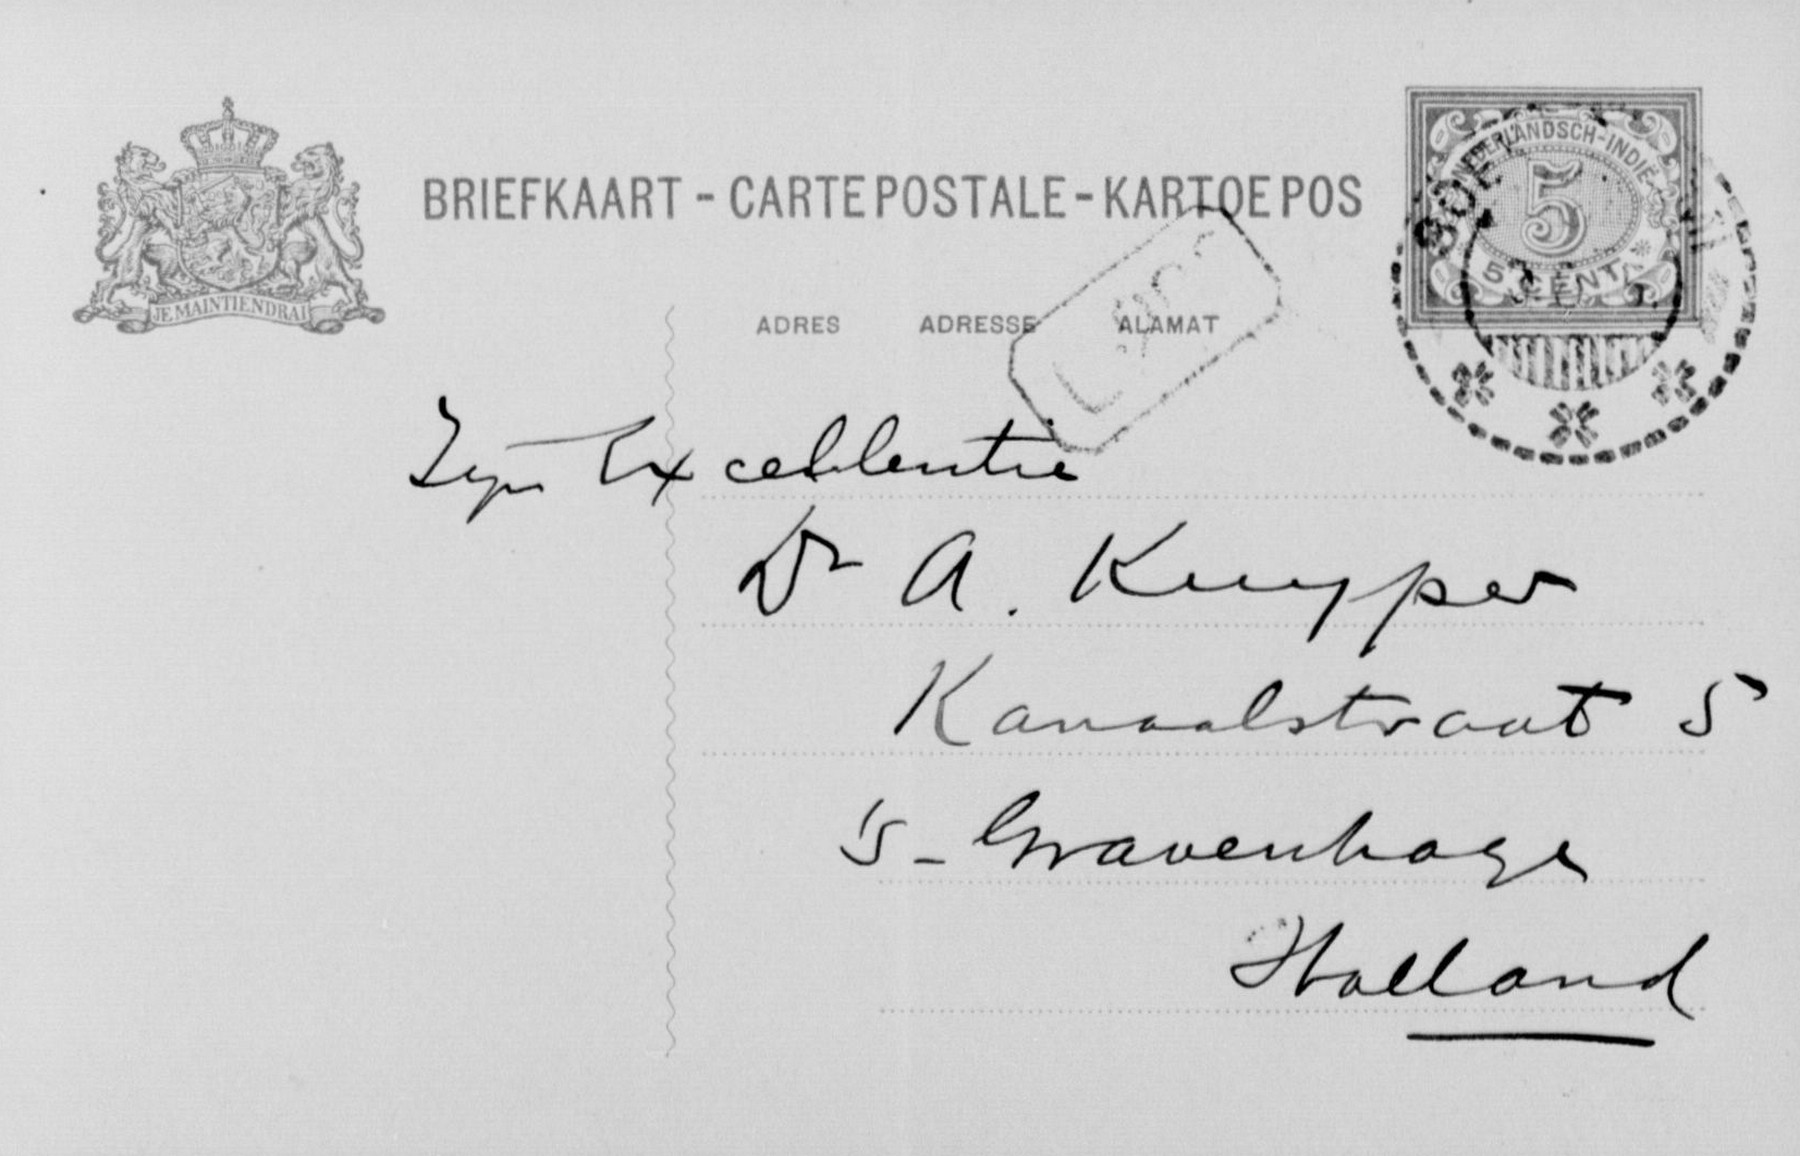 BRIEFKAART - CARTE POSTALE - KARTOE POS
NEDERLANDSCH-INDIË
5
5 CENT
JE MAINTIENDRAI
ADRES ADRESSE ALAMAT
Zyn Excellentie
Dr A. Kuyper
Kanaalstraat 5
's-Gravenhage
Holland